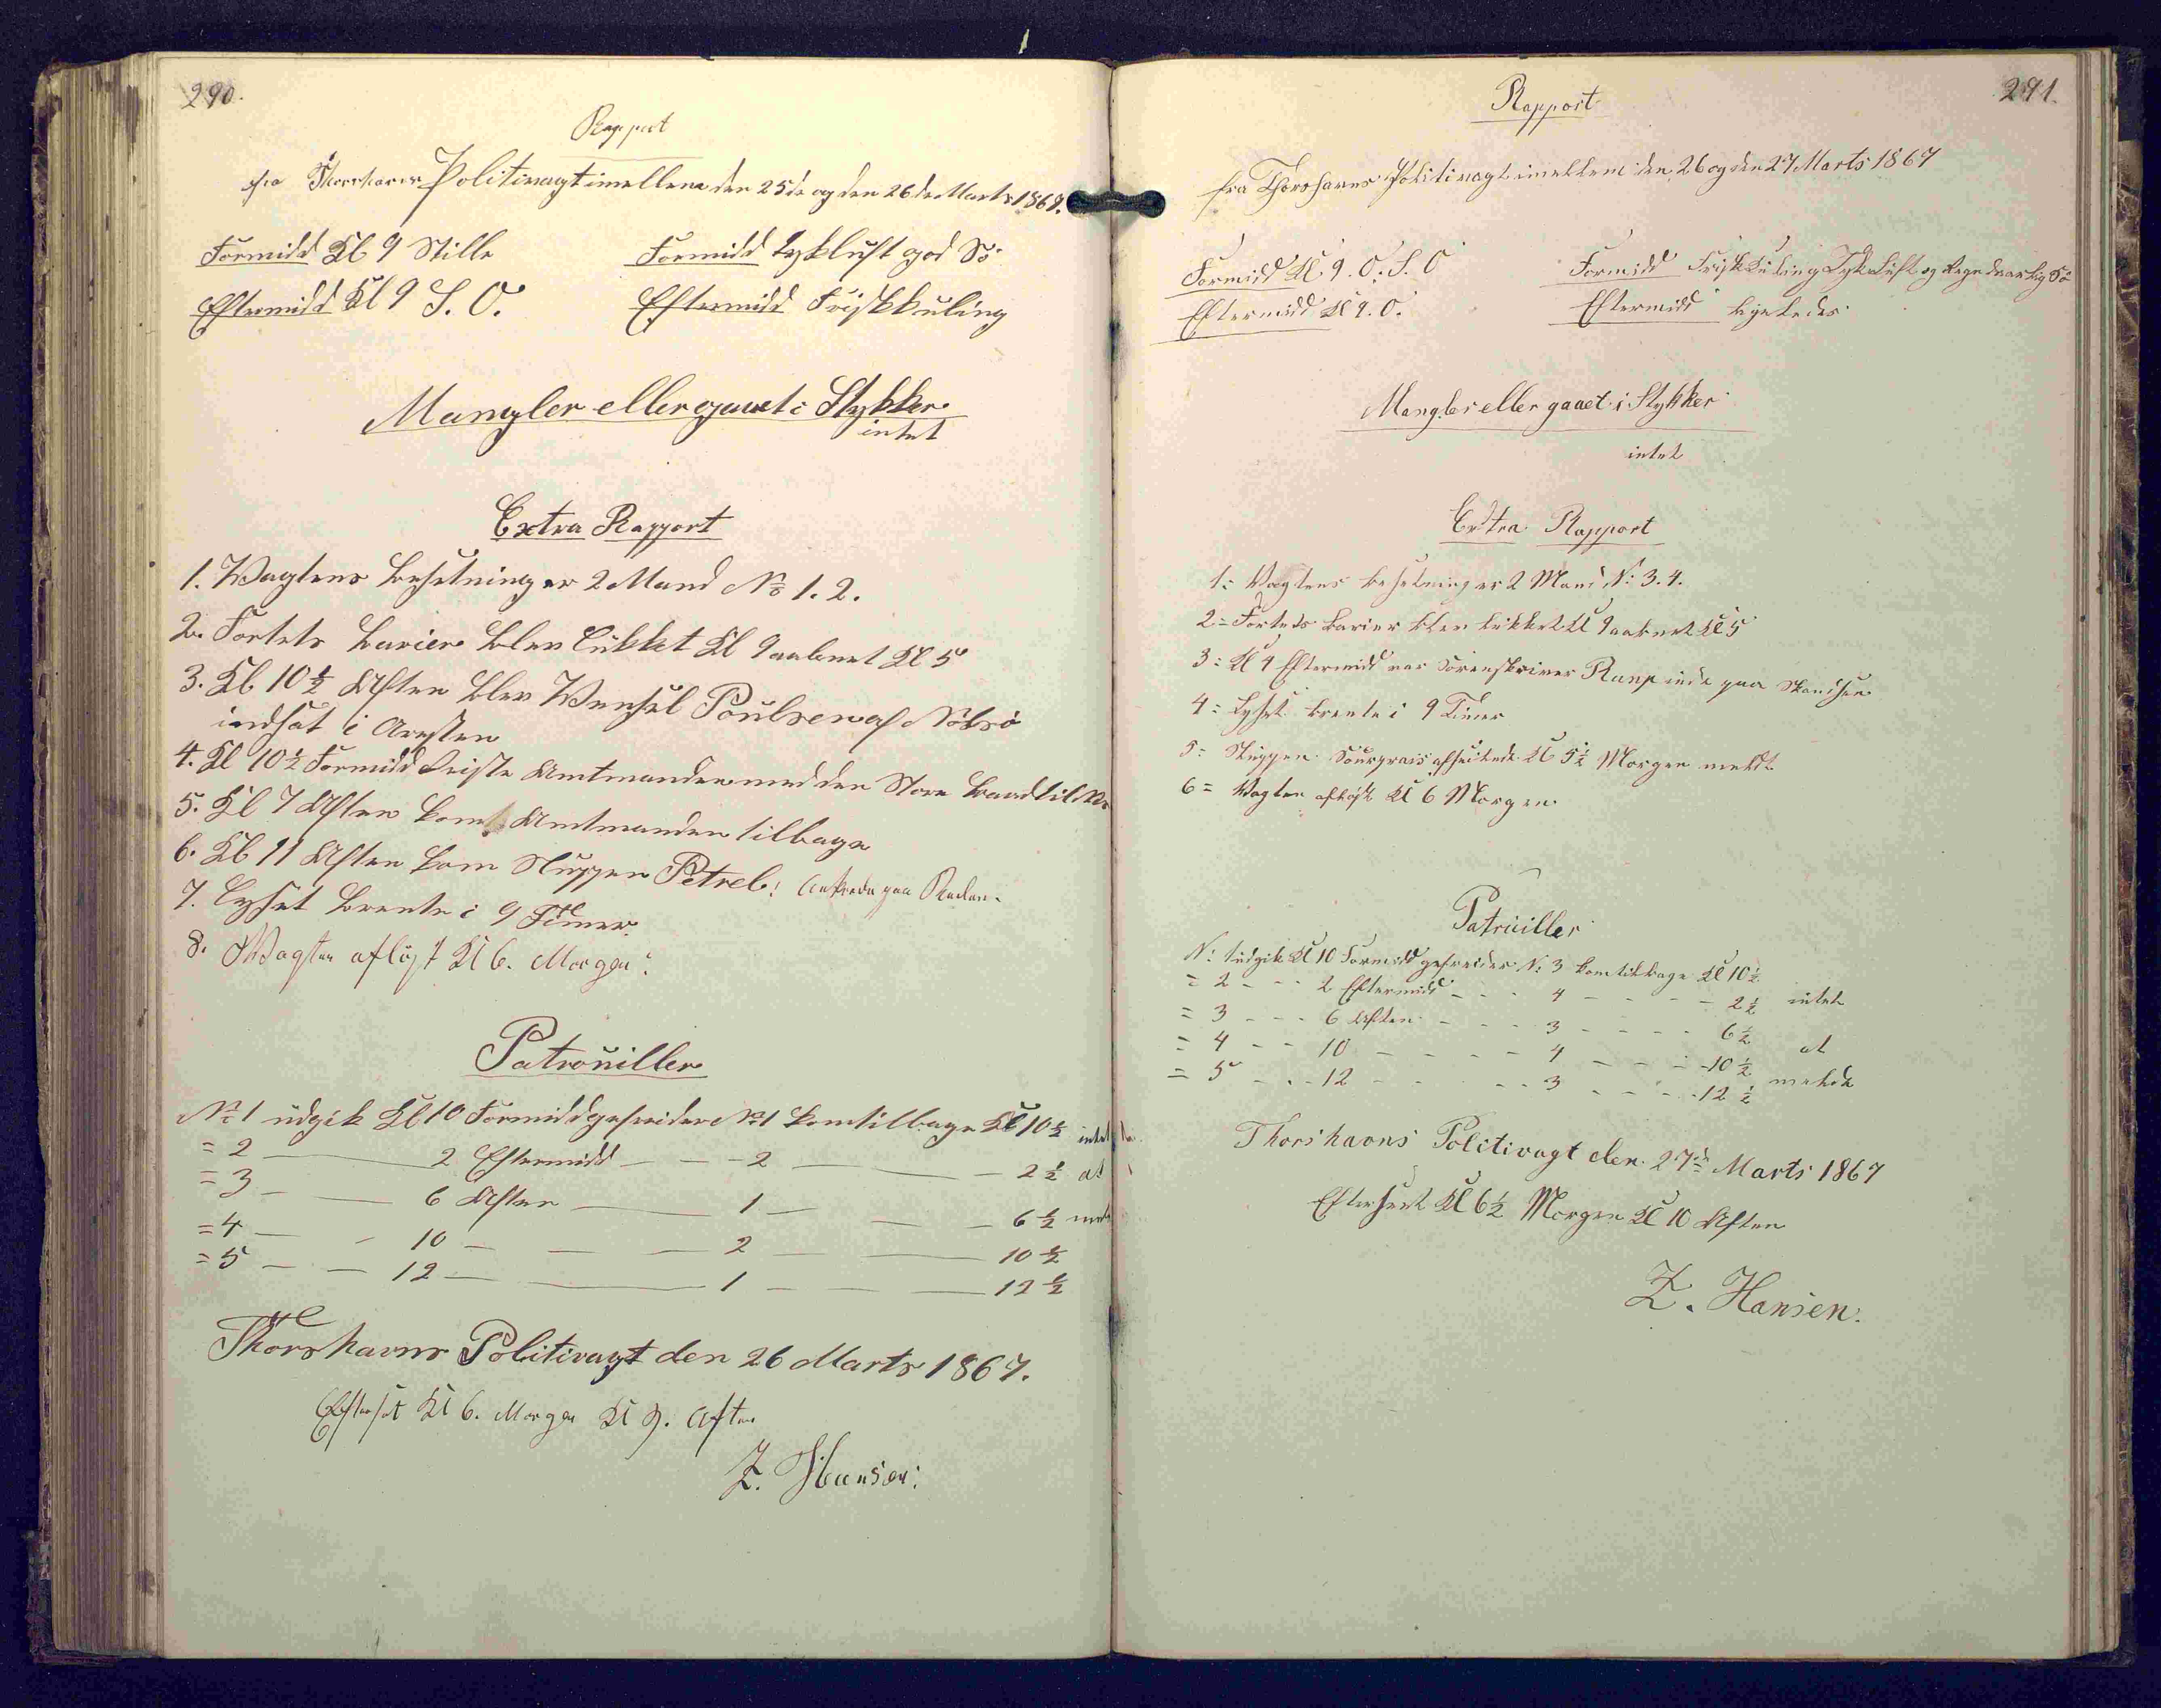 290.
Rapport
fra Thorshavns Politivagt imellem den 25de og den 26de Marts 1867.
Formidd Kl 9 Stille
Formidd tykluft god Sö
Eftermidd Kl 9 S. O.
Eftermidd Friskkuling
Mangler eller gaaet i Stykker
intet
Extra Rapport
1. Wagtens besetning er 2 Mand No 1. 2.
2. Fortets barier blev lukket Kl 9 aabnet Kl 5
3. Kl 10½ Aften blev Poulsen af Nölsö
indsat i Aresten
4. Kl 10½ Formidd reiste Amtmanden med den Store baad til
5. Kl 7 Aften kom Amtmanden tilbage
6. Kl 11 Aften kom Sluppen Petrel: ankrede paa Reden.
7. Lyset brente i 9 Timer.
8. Wagten aflöst Kl 6. Morgen.
Patrouiller
No 1 udgik Kl 10 Formidd gefreider No 1 kom tilbage Kl 10½ intet
= 2 — 2 Eftermidd — 2 — 2½ at
= 3 — 6 Aften — 1 — 6½ meld
= 4 — 10 — 2 — 10½
= 5 — 12 — 1 — 12½
Thorshavns Politivagt den 26 Marts 1867.
Efterset Kl 6. Morgen Kl 9. Aften
Z. Hansen.
291.
Rapport
fra Thorshavns Politivagt imellem den 26 og den 27 Marts 1867
Formidd Kl 9. O. S. O
Formidd Frisk Kuling Tyk Luft og Regn Sö
Eftermidd Kl 9. O.
Eftermidd ligeledes
Mangler eller gaaet i Stykker
intet
Extra Rapport
1= Vagtens besetning er 2 Mand N: 3. 4.
2= Fortets barier blev lukket Kl 9 aabnet Kl 5
3= Kl 4 Eftermidd var Sorenskriver inde paa Skandsen
4= Lyset brente i 9 Timer
5= Sluppen afseilede Kl 5½ Morgen
6= Vagten aflöst Kl 6 Morgen.
Patruiller
N: 1 udgik Kl 10 Formidd gefreider N: 3 kom tilbage Kl 10½
= 2 - - 2 Eftermidd - - 4 - - - 2½ intet
= 3 - - - 6 Aften - - - 3 - - - - 6½
= 4 - - 10 - - - - 4 - - - 10½ at
= 5 - - - 12 - - - - 3 - - - 12½ melde
Thorshavns Politivagt den 27de Marts 1867
Efterseet Kl 6½ Morgen Kl 10 Aften
Z. Hansen.